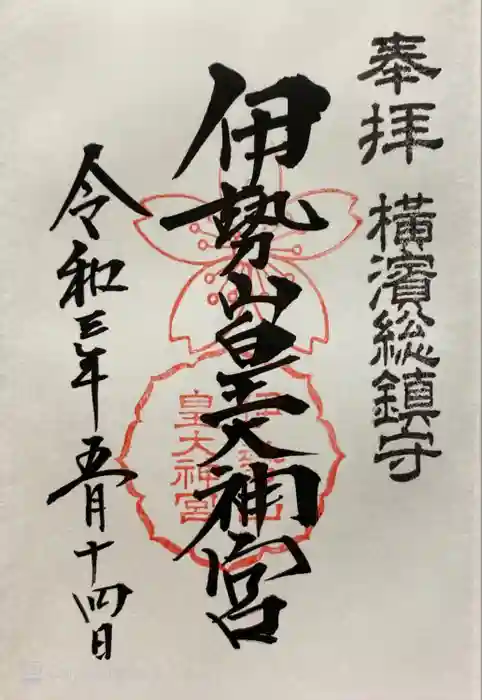 奉拝
横濱総鎮守
伊勢山皇大神宮
伊勢山
皇大神宮
令和三年五月十四日